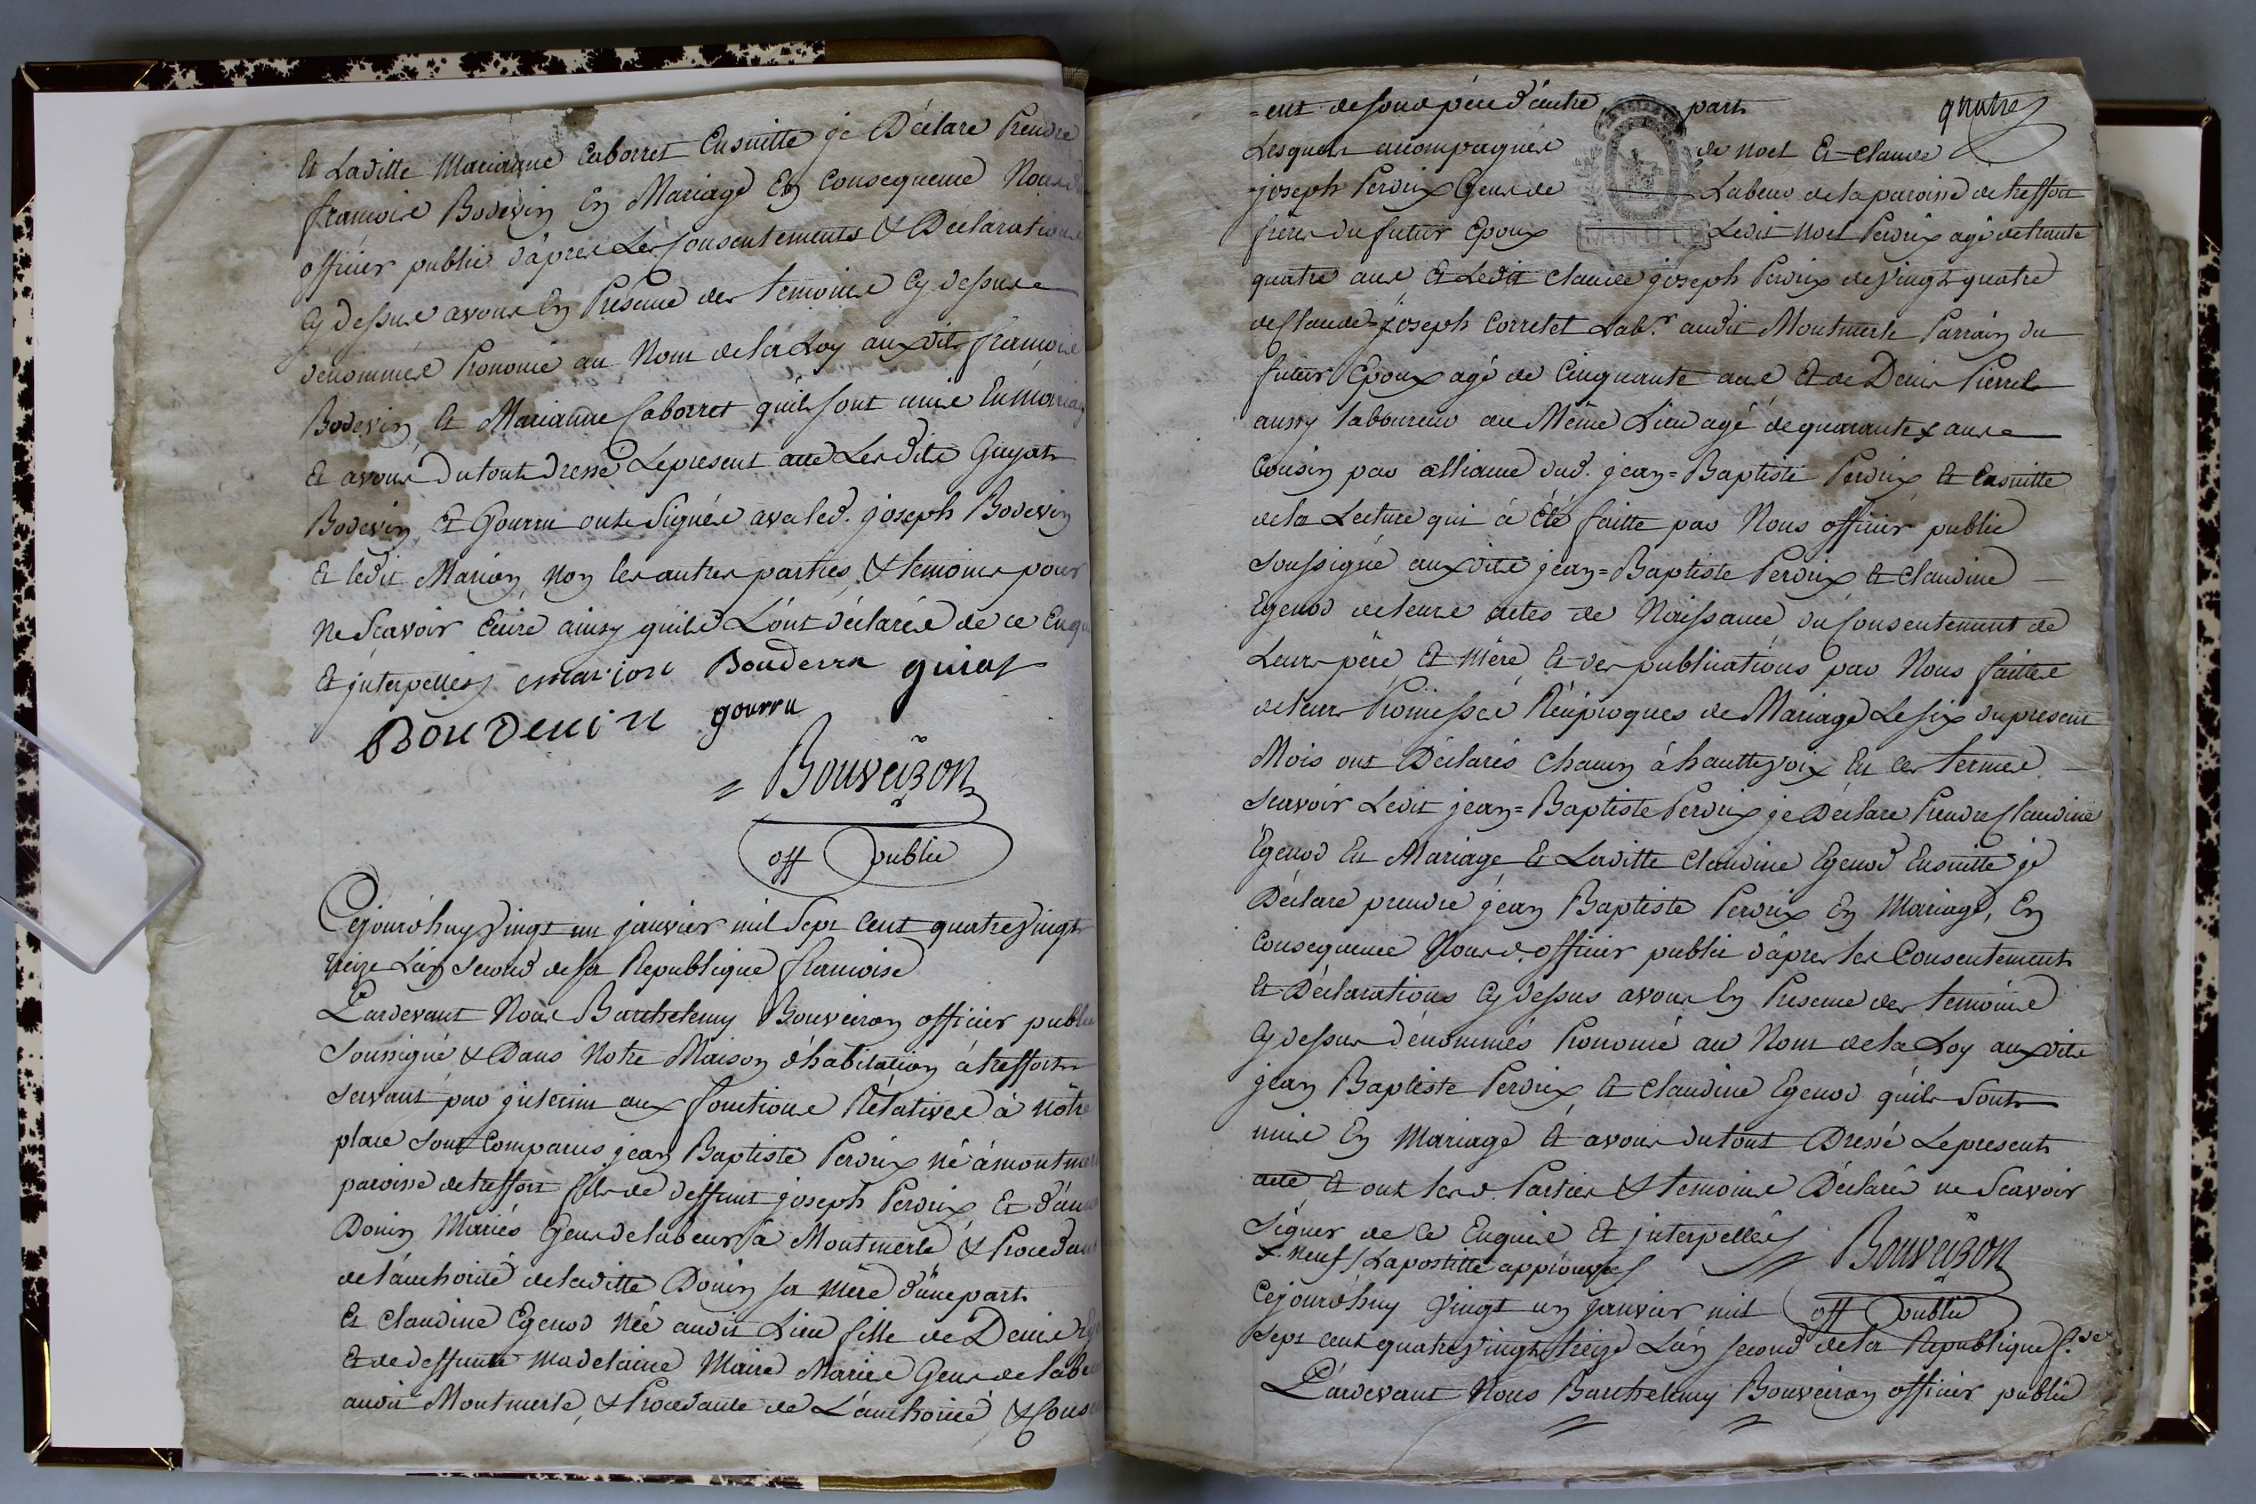 Et Laditte Marianne Caborret Ensuitte je Déclare Prendre
françoise Bodevin En Mariage En Consequence Nousd.
officier public d'apres Les Consentements & Déclarations
Cy dessus avons En Présence des temoins Cy dessus
dénommés Prononcé au Nom de la Loy auxdits françois
Bodevin, Et Marianne Caborret qu'ils sont unis En mariage
Et avons du tout Dressé Le present acte Lesdits Guyat
Bodevin, Et Gourru onts Signés avec led. joseph Bodevin
Et ledit Marion, Non les autres parties, & temoins pour
Ne Scavoir Ecrire ainsy quils L'ont déclarés de ce Enquis
Et interpellés marion Bouderin guiat
BouDeuin gourru
Bouveiron
off public
Cejourd'huy vingt un janvier mil Sept Cent quatre vingt
treize L'an Second de la Republique francoise
Pardevant Nous Barthelemy Bouveiron officier public
Soussigné & Dans Notre Maison d'habitation à treffort
Servant par interim aux fonctions Rélatives à Nôtre
place Sont Comparus jean Baptiste Perdrix né à montmerle
paroisse de treffort fils de deffunt joseph Perdrix Et d'anne
Donin Mariés Gens de labeur à Montmerle & Procedant
de l'authorité de laditte Donin sa mère d'une part
Et Claudine Egenod Née audit Lieu fille de Denis
Et de deffunte Madelaine Maire Mariés Gens de labeur
audit Montmerle, & Procedante de L'authorité, & Cons
=ent de sond père d'autre part quatre
Lesquels accompagnés de Noel Et Claude
joseph Perdrix Gens de Labeur de la paroisse de treffort
frères du futur Epoux Ledit Noel Perdrix agé de trente
quatre ans Et Ledit Claude joseph Perdrix de vingt quatre
de Claude=joseph Corretet Lab.r audit Montmerle Parrain du
futur Epoux agé de Cinquante ans Et de Denis
aussy laboureur au Même Lieu agé de quarante x ans
Cousin par alliance dud. jean=Baptiste Perdrix Et Ensuitte
de la Lecture qui à Été faitte par Nous officier public
Soussigné auxdits jean=Baptiste Perdrix Et Claudine
Egenod de leurs actes de Naissance du Consentement de
Leurs père Et mère Et des publications par Nous faittes
de leurs Promesses Réciproques de Mariage Le six du present
Mois ont Déclarés Chacun à haute voix En ces termes
Scavoir Ledit jean=Baptiste Perdrix je Déclare Prendre Claudine
Egenod En Mariage Et Laditte Claudine Egenod Ensuitte je
Déclare prendre jean Baptiste Perdrix En Mariage, En
Consequence Nousd. officier public d'apres les Consentements
Et Déclarations Cy dessus avons En Presence des temoins
Cy dessus dénommés Prononcé au Nom de la Loy auxdits
jean Baptiste Perdrix Et Claudine Egenod qu'ils Sont
unis En Mariage Et avons du tout Dressé Le present
acte Et ont lesd. Parties & temoins Déclarés ne Scavoir
Signer de ce Enquis Et interpellés Bouveiron
x neuf / Lapostille approuvée
Cejourd'huy vingt un janvier mil off public
Sept cent quatre vingt treize L'an Second de la Republique f.se
Pardevant Nous Barthelemy Bouveiron officier public